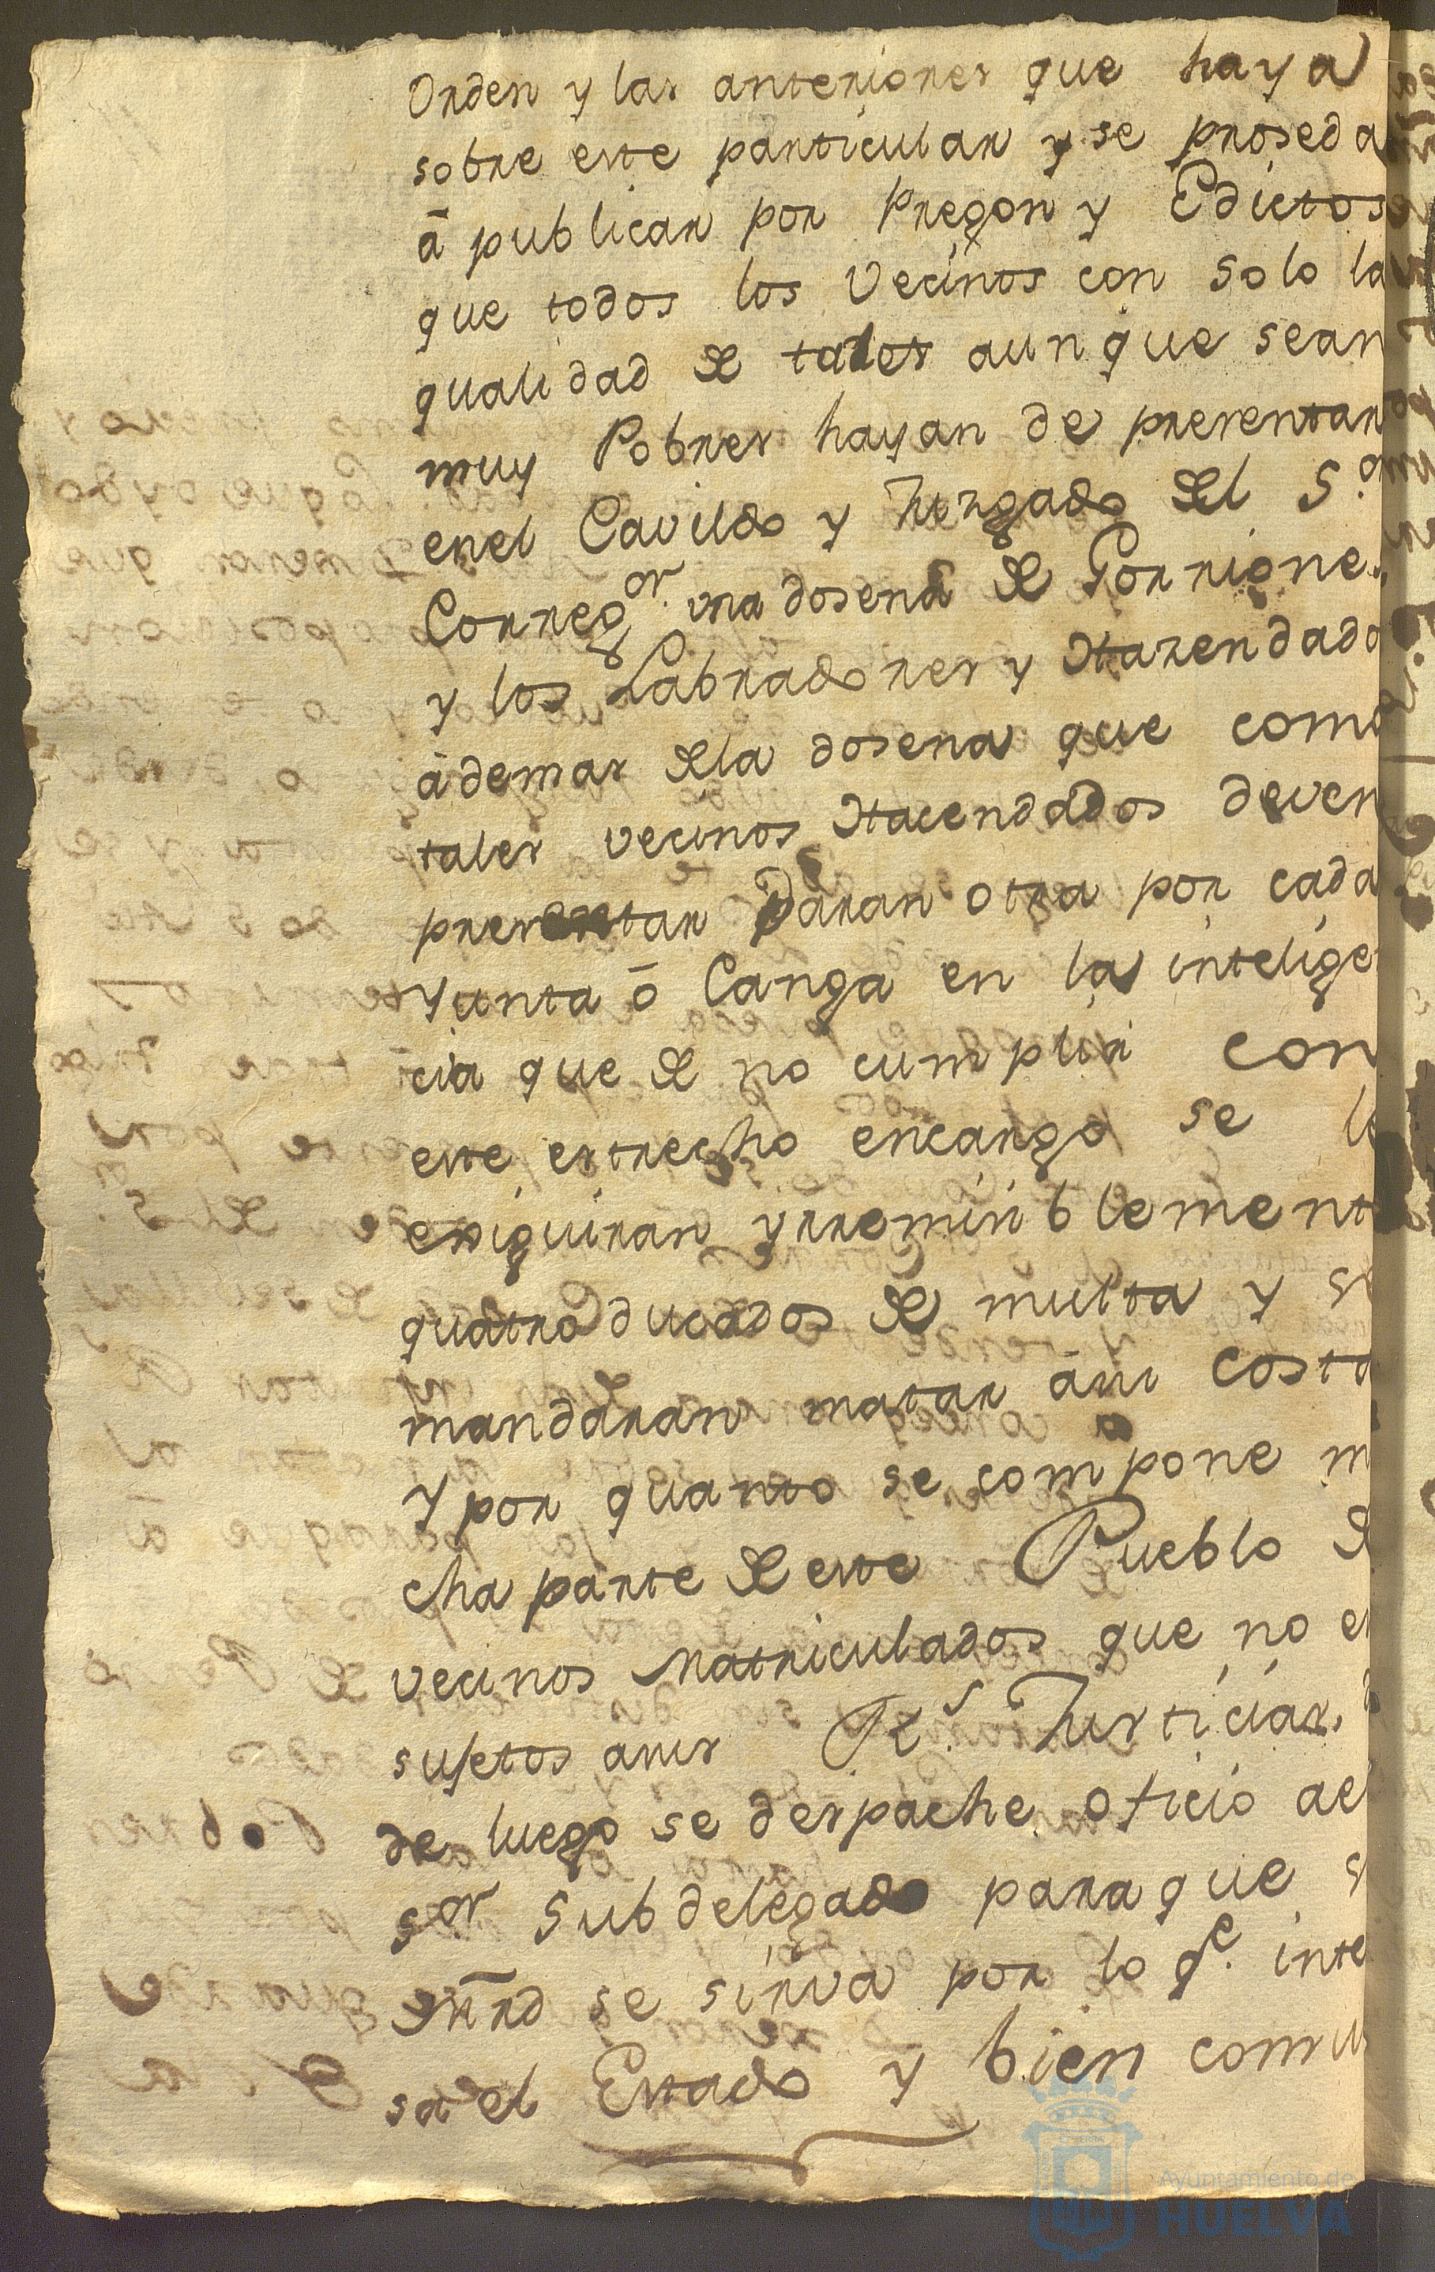 Orden y las anteriores que haya
sobre este particular y se proseda
â publicar por Pregon y Edictos
que todos los Vecinos con solo la
qualidad de tales aunque sean
muy Pobres hayan de presentar
enel Cavildo y Juzgado del S.or
Correg.or una dosena de Gorriones
y los Labradores y Hazendado
âdemas dela dosena que como
tales vecinos Hacendados deven
presentar daran otra por cada
Yunta ô Canga en la intelige
cia que de no cumplir con
este estrecho encargo se le
exiguiran yrremisiblement
quatro ducados de multa y se
mandaran matar âsu costa
Y por quanto se compone m
cha parte de este Pueblo de
vecinos Matriculados que no es
sujetos asus R.s Justicias, d
de luego se despache oficio ael
Sor Subdelegado paraque s
mrd se sirva por lo q.e inte
sa el Estado y bien comu
Ayuntamiento de
HUELVA